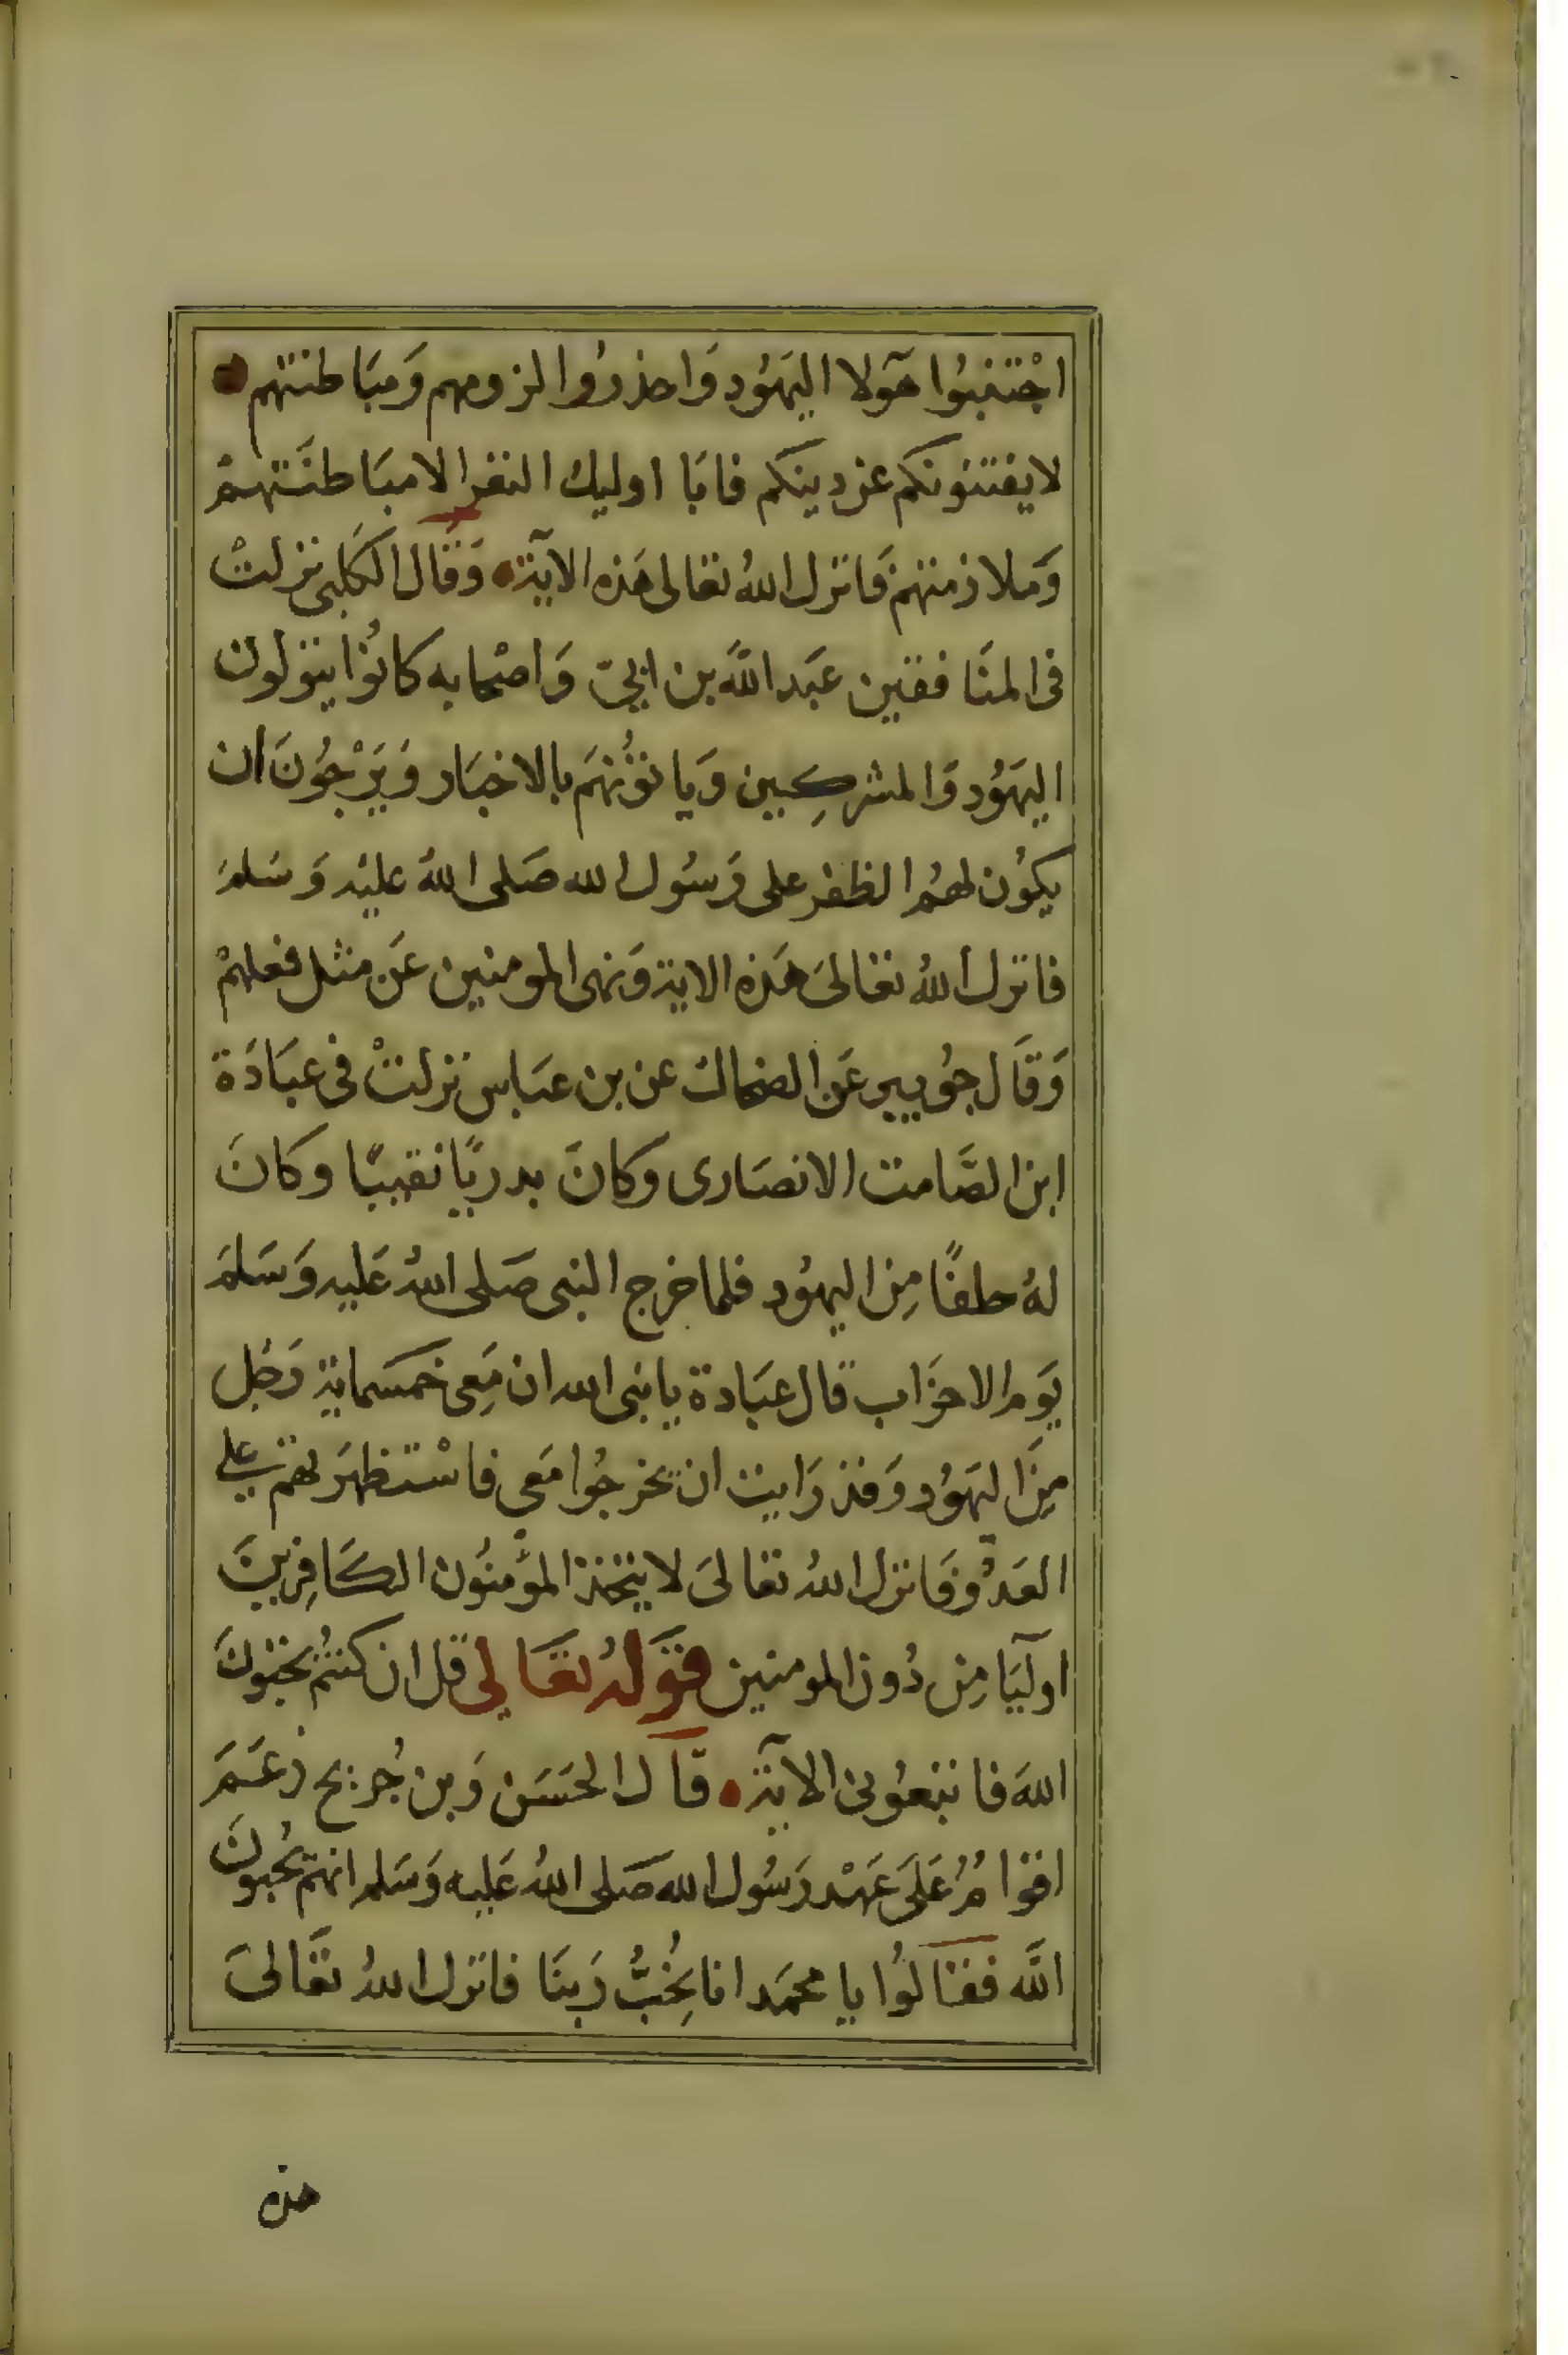 اجْتنبُوا هَٓولا اليهَوُد وَاحذروُا لزومهم وَمبَاطنتهم
لا يفتنونكم عن دينكم فابَا اوليك النفر الا مبَاطنَتهمْ
وَملازمتهم فَانزل اللهُ تعالى هَذه الآية وَقَال الكَلبى نزلتْ
فى المنَافقين عَبَد اللَّه بن ابىّ وَاصْحابه كانوُا يتولون
اليهَوُد وَالمشركِين وَياتوُنهَم بالاخبَار وَيَرْجوُنَ ان
يكوُن لهمُ الظفر على رَسُول الله صَلى اللهُ عليْه وَسَلمَ
فانزل اللهُ تعَالىَ هَذه الاية وَنهى المومنين عَن مثل فعلهمْ
وَقَال جوُيبر عَن الضحاك عن بن عبَاس نزلتْ فى عبَادَة
ابن الصَّامت الانصَارى وكانَ بدريًا نقيبًا وكانَ
لهُ حلفًا مِن اليهوُد فلما خرج النبى صَلى اللهُ عَليه وَسَلمَ
يَوم الاحزَاب قال عبَادة يا نبى الله ان مَعِى خمسَماية رَجُل
مِنَ اليَهوُد وَقد رَايت ان يخرجوُا مَعِى فاسْتظهَر بهم على
العَدوّ فَانزل اللهُ تعَالىَ لا يتخذ المؤمنُون الكَافِرينَ
اوليَآ مِن دُون المومنين قَولهُ تعَالى قل ان كنتُم تحبوُنَ
اللهَ فاتبعوُنى الآية قَال الحَسَن وَبن جُريج زعَمَ
اقوامُ عَلىَ عَهْد رَسُول الله صَلى اللهُ عَليه وَسَلم انهم يُحبوُنَ
اللَّه فقالوُا يا محمَد انا نحُبُّ رَبنَا فانزل اللهُ تعَالىَ
هذه